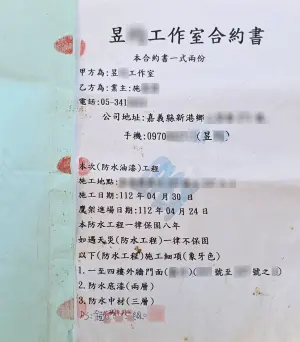 昱 工作室合約書
本合約書一式兩份
甲方為:昱 工作室
乙方為:業主:施
電話:05-341
公司地址:嘉義縣新港鄉
手機:0970 (昱 )
本次(防水油漆)工程
施工地點:
施工日期:112年04月30日
鷹架進場日期:112年04月24日
本防水工程一律保固八年
如遇天災(防水工程)一律不保固
以下(防水工程)施工細項(象牙色)
1.一至四樓外牆門面( )( 號至 號之 )
2.防水底漆(兩層)
3.防水中材(三層)